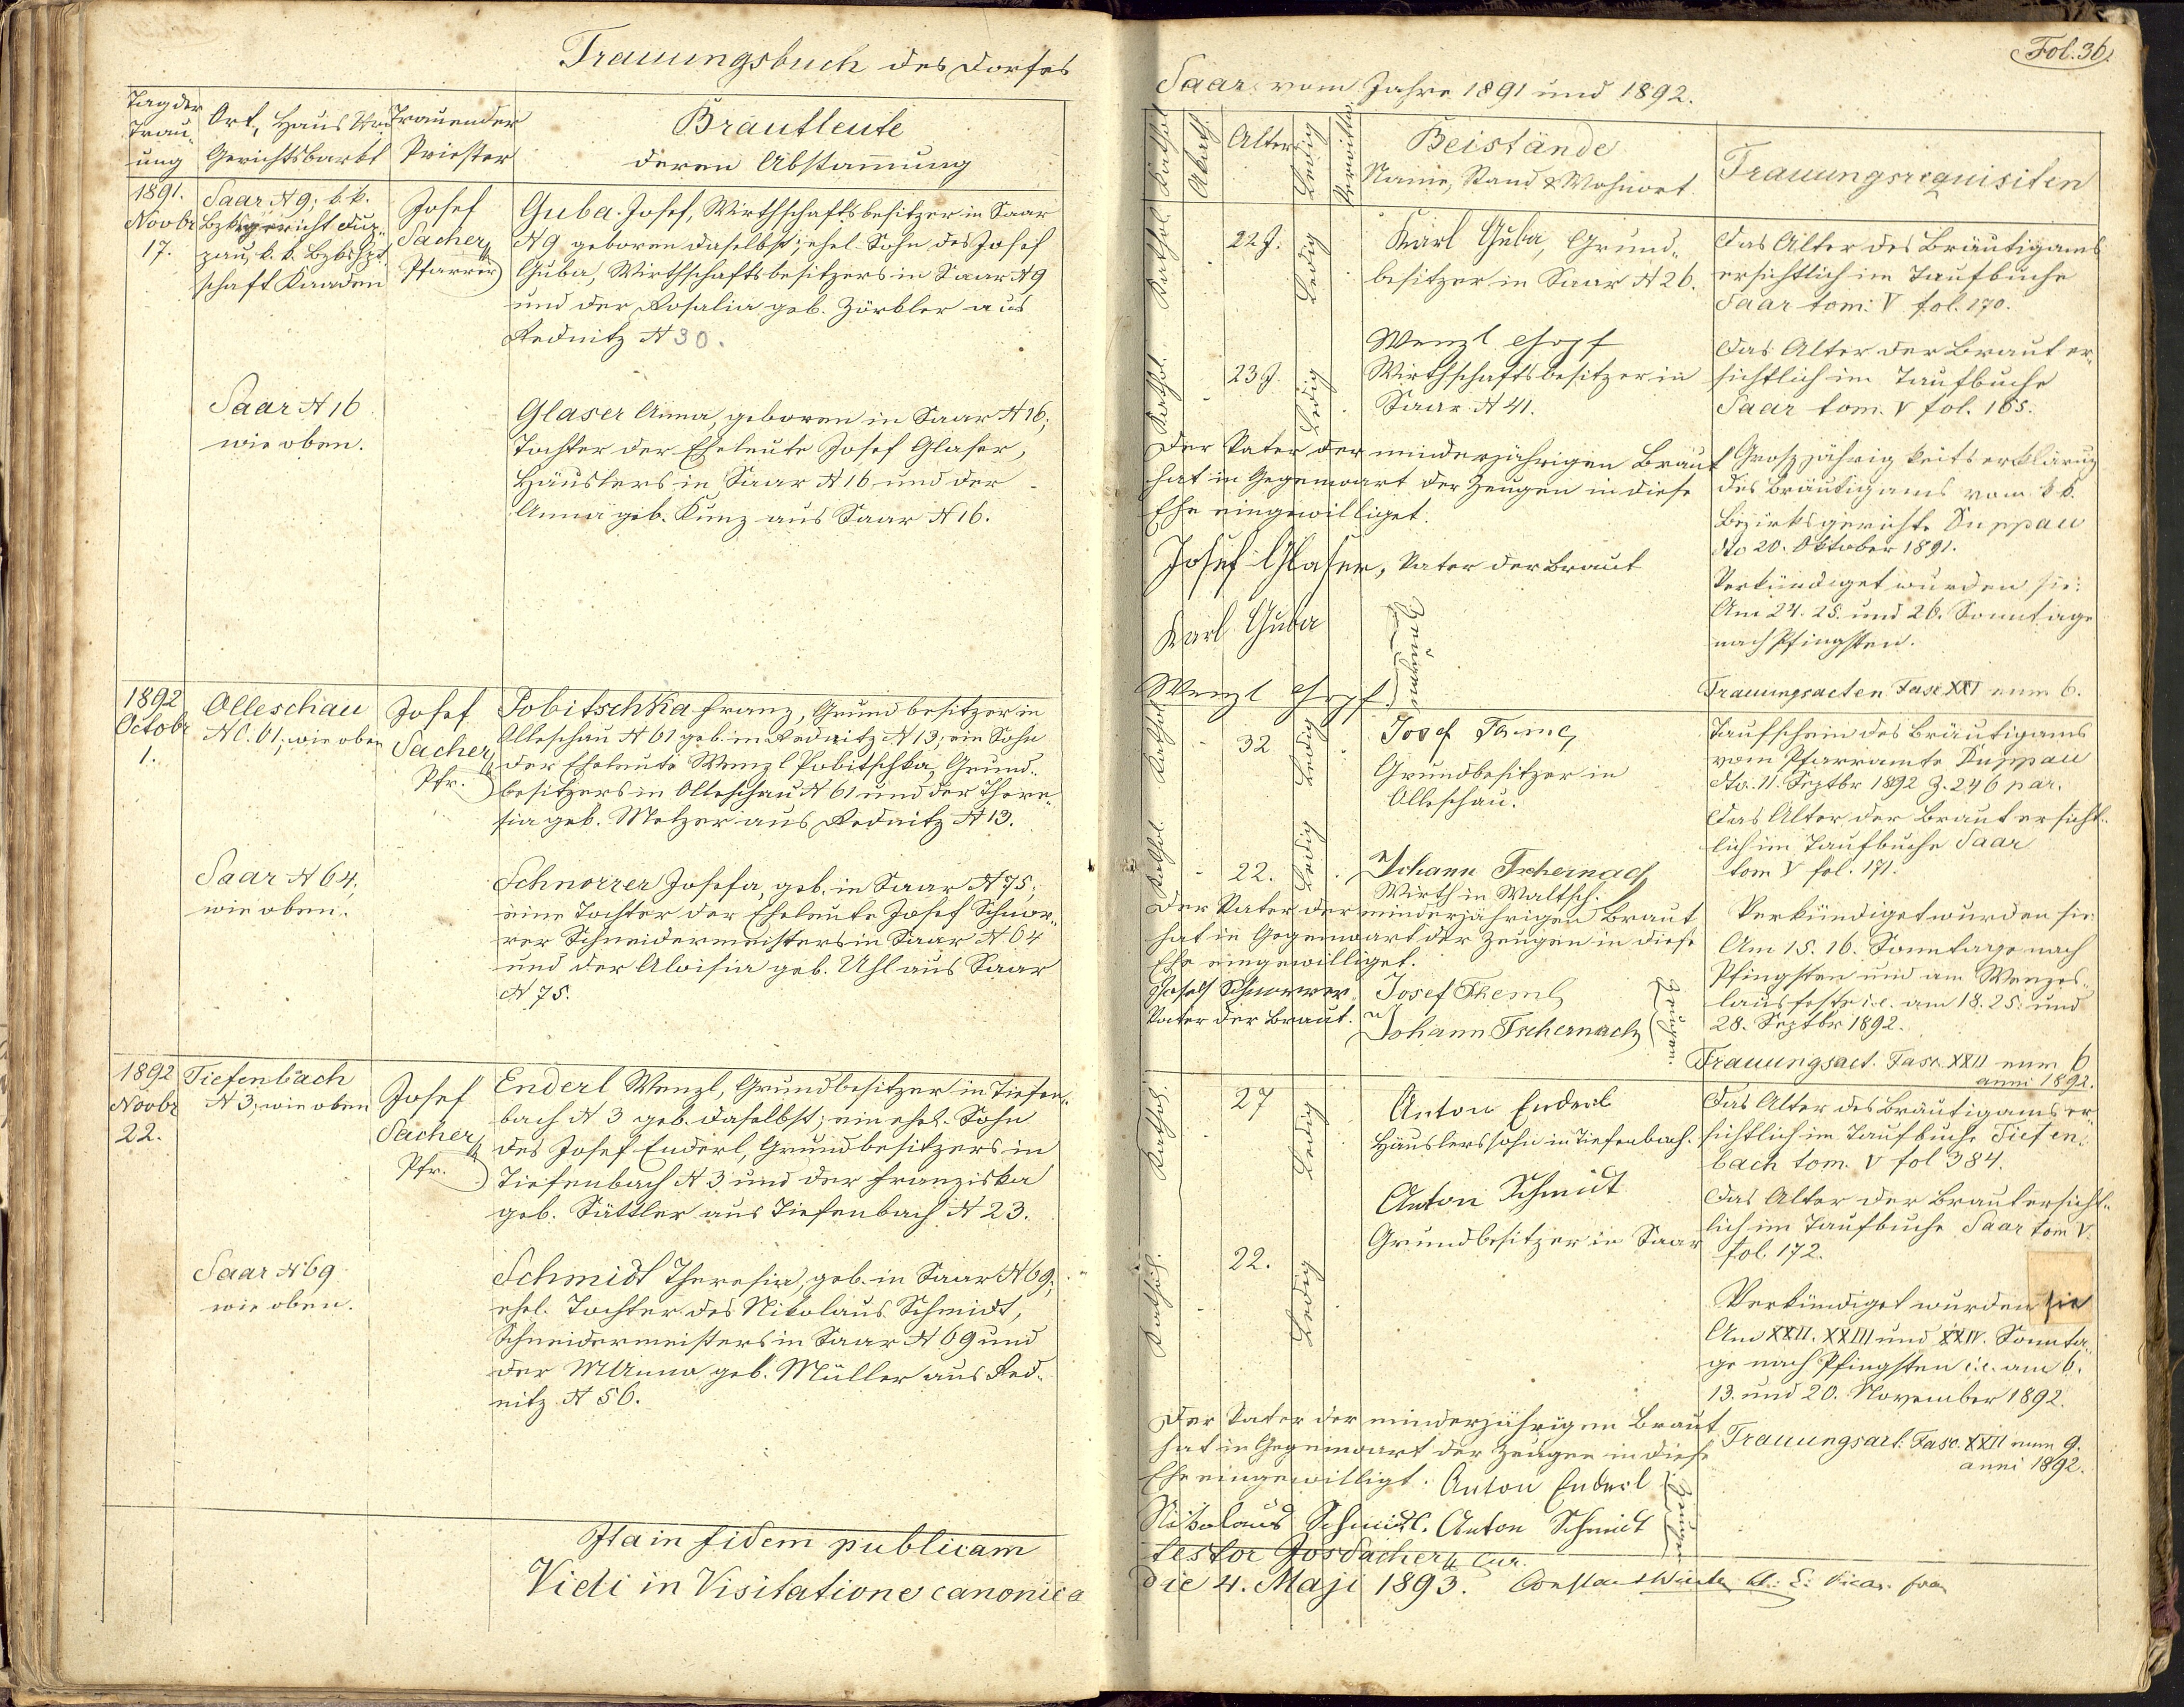 Trauungsbuch des Dorfes
Tag der
Trau-
ung
Ort, Haus Nro
Gerichtsbarkt
Trauender
Priester
Brautleute
deren Abstam̄ung
1891.
Novbr
17.
Saar N 9; k. k.
Bzksgericht Dup-
pau, k. k. Bzkshpt
schaft Kaaden
Josef
Sacher
Pfarrer
Guba Josef, Wirthschaftsbesitzer in Saar
N 9 geboren daselbst; ehel. Sohn des Josef
Guba, Wirthschaftsbesitzers in Saar N 9
und der Rosalia geb. Zörkler aus
Rednitz N 30.
Saar N 16
wie oben.
Glaser Anna, geboren in Saar N 16;
Tochter der Eheleute Josef Glaser,
Häuslers in Saar N 16 und der
Anna geb. Kunz aus Saar N 16.
1892
Octobr
1.
Olleschau
N C. 61; wie oben
Josef
Sacher
Pfr.
Pobitschka Franz, Grundbesitzer in
Olleschau N 61 geb. in Rednitz N 13; ein Sohn
der Eheleute Wenzl Pobitschka, Grund-
besitzers in Olleschau N 61 und der There-
sia geb. Melzer aus Rednitz N 13.
Saar N 64,
wie oben.
Schnorrer Josefa, geb. in Saar N 75;
eine Tochter der Eheleute Josef Schnor-
rer Schneidermeisters in Saar N 64
und der Aloisia geb. Uhl aus Saar
N 75.
1892
Novbr
22.
Tiefenbach
N 3; wie oben
Josef
Sacher
Pfr.
Enderl Wenzl, Grundbesitzer in Tiefen-
bach N 3 geb. daselbst; ein ehel. Sohn
des Josef Enderl, Grundbesitzers in
Tiefenbach N 3 und der Franziska
geb. Sättler aus Tiefenbach N 23.
Saar N 69
wie oben.
Schmidt Theresia, geb. in Saar N 69;
ehel. Tochter des Nikolaus Schmidt,
Schneidermeisters in Saar N 69 und
der M Anna geb. Müller aus Red-
nitz N 56.
Ita in fidem publicam
Vidi in Visitatione canonica
Fol. 36.
Saar vom Jahre 1891 und 1892.
Kathol.
Akath.
Alter
Ledig
Verwittw.
Beistände
Name, Stand & Wohnort
Trauungsrequisiten
Kathol.
22 J.
Ledig
Karl Guba, Grund-
besitzer in Saar N 26.
Das Alter des Bräutigams
ersichtlich im Taufbuche
Saar tom: V fol. 170.
Kathol.
23 J.
Ledig
Wenzl
Wirthschaftsbesitzer in
Saar N 41.
Das Alter der Braut er-
sichtlich im Taufbuche
Saar tom. V fol. 165.
Der Vater der minderjährigen Braut
hat in Gegenwart der Zeugen in diese
Ehe eingewilliget.
Josef Glaser, Vater der Braut
Karl Guba
Wenzl
Zeugen
Großjährigkeitserklärung
des Bräutigams vom k. k.
Bezirksgerichte Duppau
dto 20. Oktober 1891.
Verkündiget wurden sie:
Am 24. 25. und 26. Sonntage
nach Pfingsten.
Trauungsacten Fasc. XXI num 6.
Kathol.
32
Ledig
Josef
Grundbesitzer in
Olleschau.
Taufschein des Bräutigams
vom Pfarramte Duppau
dto. 11. Septbr 1892 Z. 246 par.
Das Alter der Braut ersicht-
lich im Taufbuche Saar
tom V fol. 171.
Kathol.
22.
Ledig
Johann Tschernach
Wirth in Waltsch.
Der Vater der minderjährigen Braut
hat in Gegenwart der Zeugen in diese
Ehe eingewilliget.
Josef Schnorrer
Vater der Braut.
Josef
Johann Tschernach
Zeugen.
Verkündiget wurden sie
Am 15. 16. Sonntage nach
Pfingsten und am Wenzes-
lausfeste i. e. am 18. 25. und
28. Septbr 1892.
Trauungsact. Fasc. XXII num 6
anni 1892.
Kathol.
27
Ledig
Anton Enderl
Häuslerssohn in Tiefenbach.
Das Alter des Bräutigams er-
sichtlich im Taufbuche Tiefen-
bach tom. V fol 384.
Anton Schmidt
Grundbesitzer in Saar
Kathol.
22.
Ledig
Das Alter der Braut ersicht-
lich im Taufbuche Saar tom V.
fol. 172.
Verkündiget wurden sie
Am XXII. XXIII und XXIV. Sonnta-
ge nach Pfingsten i. e. am 6.
13. und 20. November 1892.
Der Vater der minderjährigen Braut
hat in Gegenwart der Zeugen in diese
Ehe eingewilligt. Anton Enderl
Nikolaus Schmidt. Anton Schmidt
Zeugen
Trauungsact. Fasc. XXII num 9.
anni 1892.
testor Jos Sacher Cur.
die 4. Maji 1893.